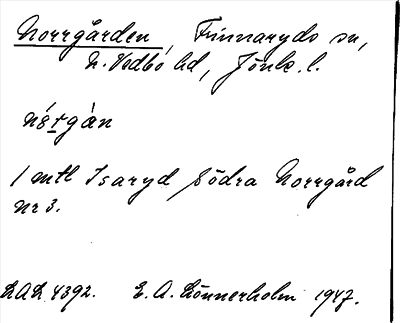 Norrgården, Finnaryds sn,
N. Vedbo hd, Jönk. l.
nórgàn
1 mtl Isaryd Södra Norrgård
nr 3.
LAL 4392. E. A. Lönnerholm 1947.